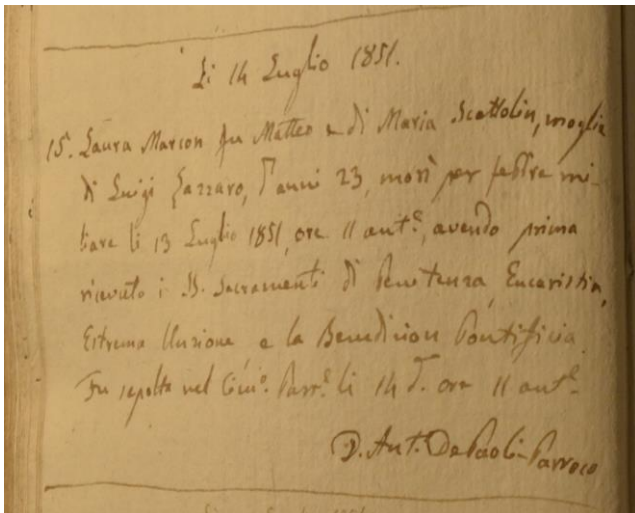 Li 14 Luglio 1851.
15. Laura Marcon fu Matteo e di Maria Scattolin, moglie
di Luigi Lazzaro, d'anni 23, morì per febbre mi-
liare li 13 Luglio 1851, ore 11 ant.e, avendo prima
ricevuto i SS. Sacramenti di Penitenza, Eucaristia,
Estrema Unzione, e la Benedizion Pontificia.
Fu sepolta nel Cim.o Parr.e li 14 d.o ore 11 ant.e
D. Ant. DePaoli Parroco